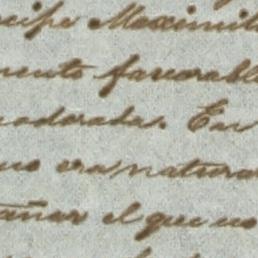 cipe Maximili
mento favorabl
adorada. En
no era natura
añar el que no